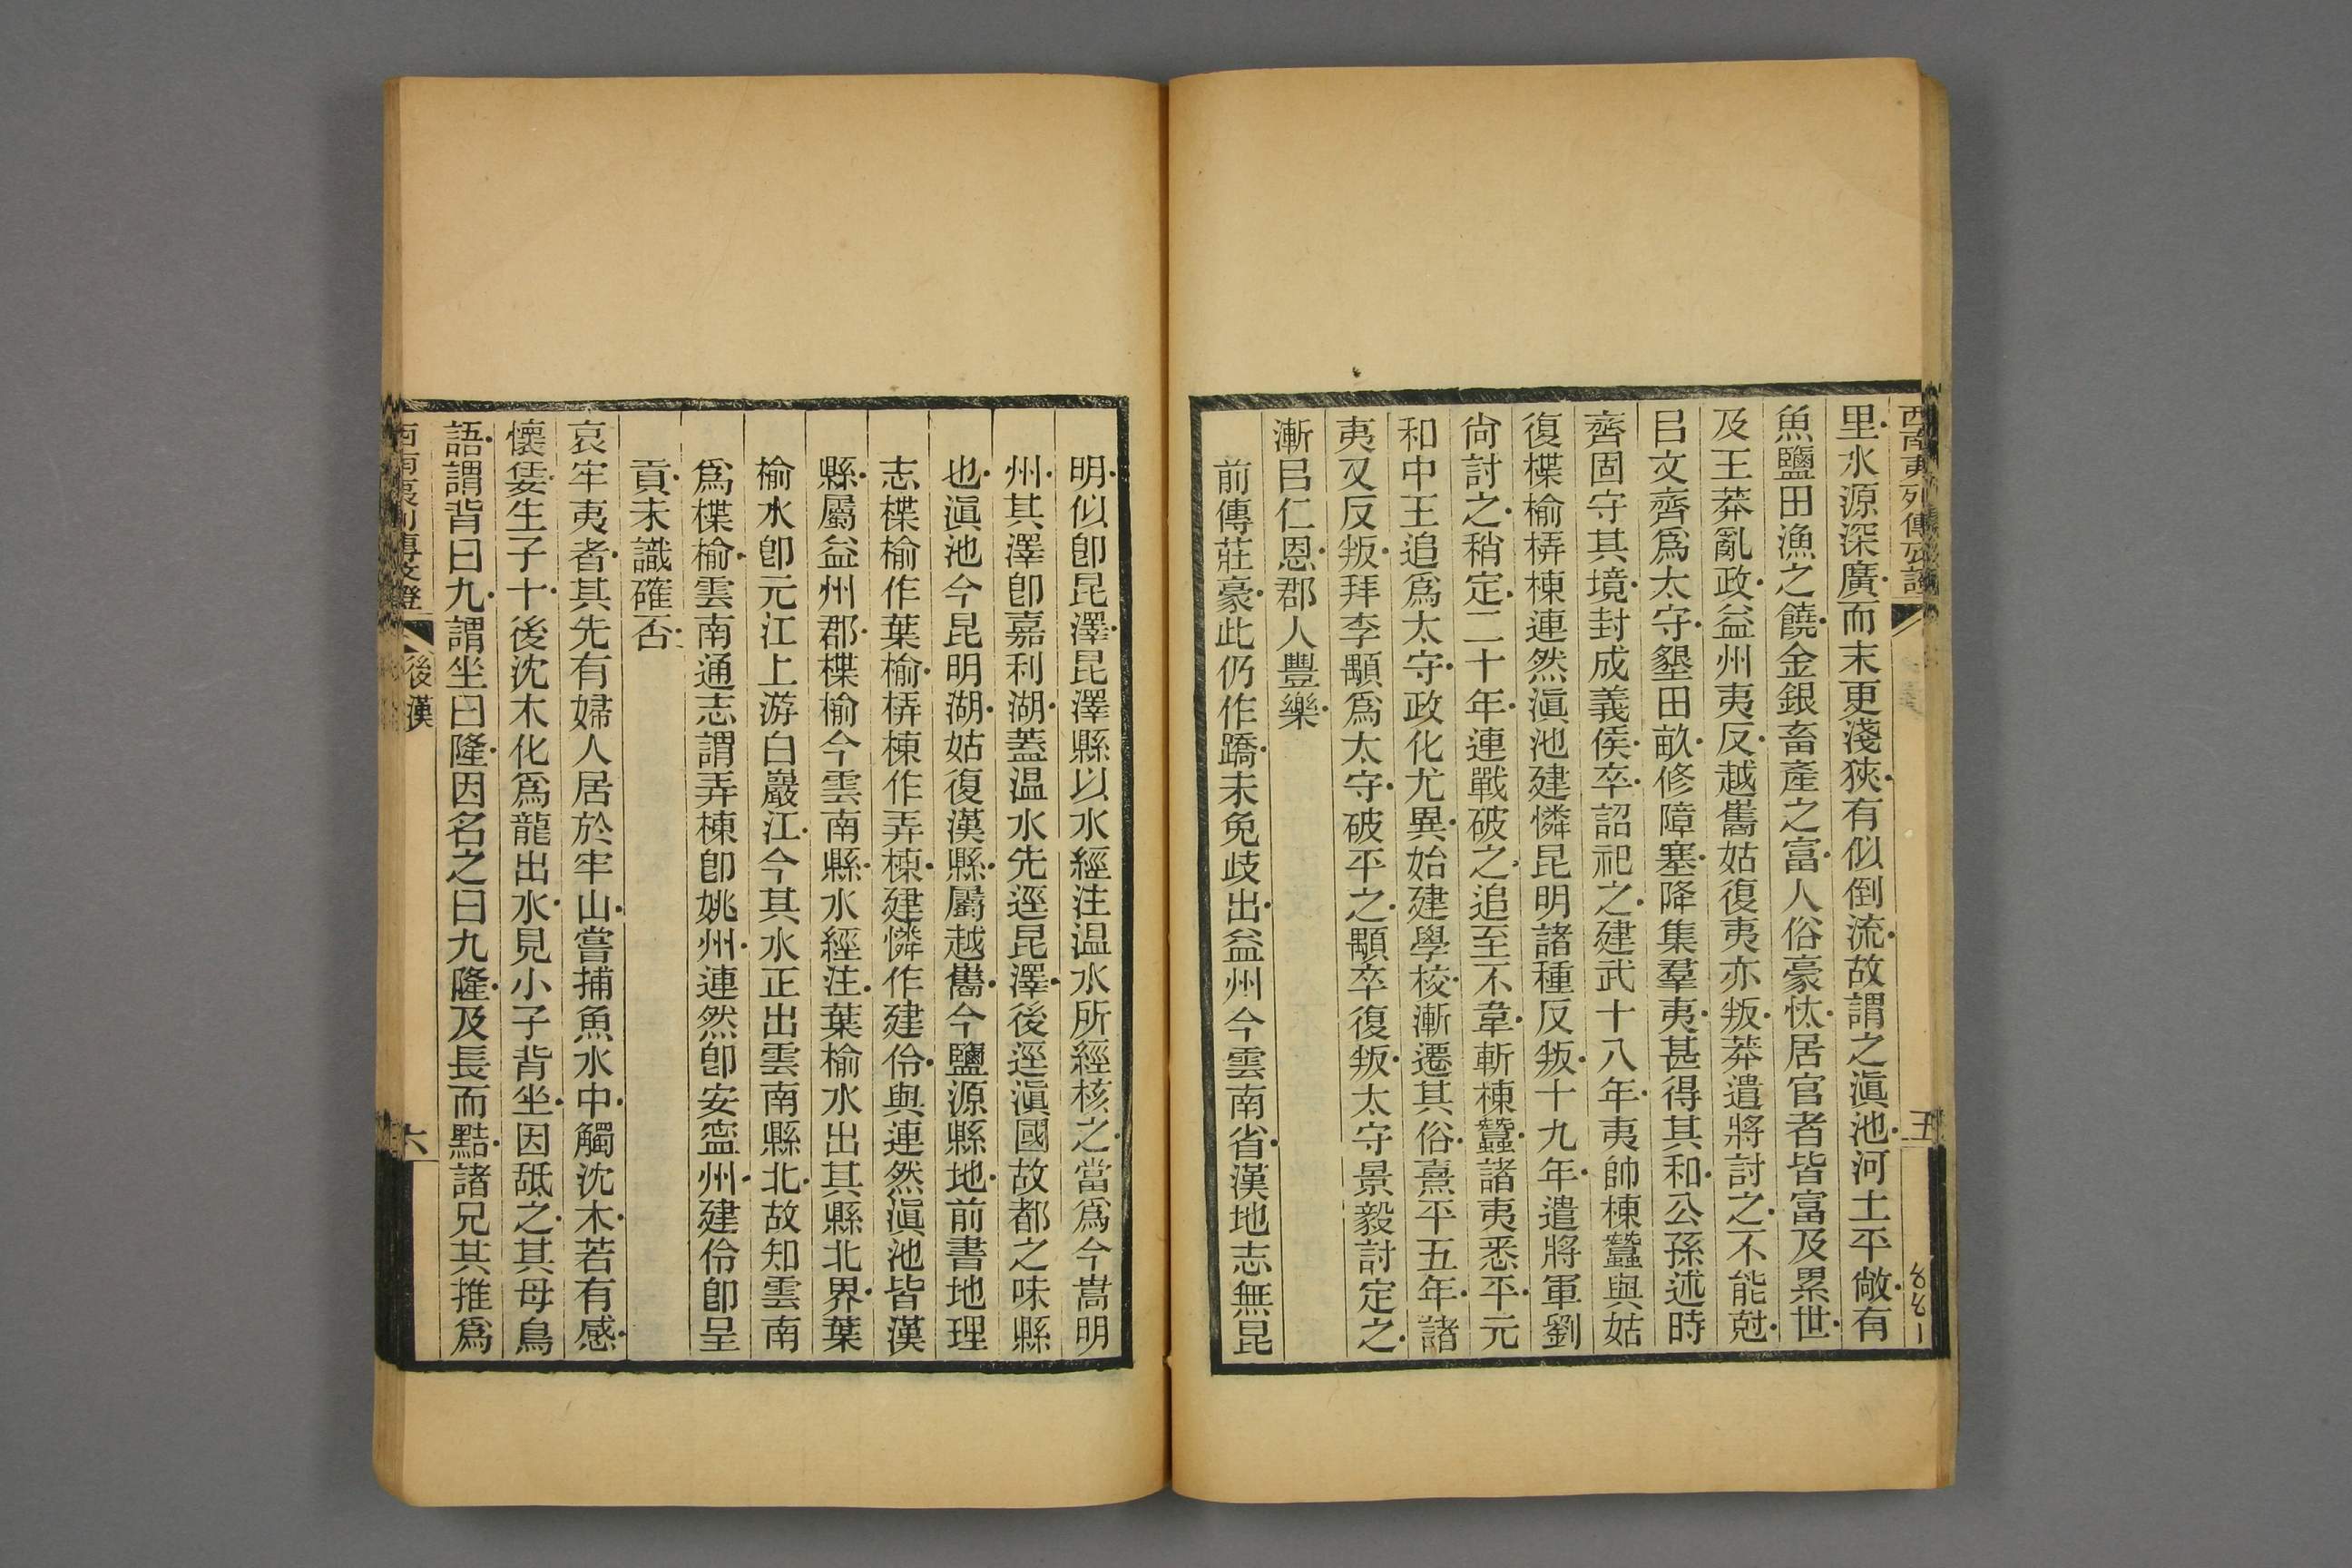 西南夷列傳攷證
五
881
里水源深廣而末更淺狹有似倒流故謂之滇池河土平敞有
魚鹽田漁之饒金銀畜產之富人俗豪忲居官者皆富及累世
及王莽亂政益州夷反越巂姑復夷亦叛莽遣將討之不能尅
㠯文齊爲太守墾田畝修障塞降集羣夷甚得其和公孫述時
齊固守其境封成義侯卒詔祀之建武十八年夷帥棟蠶與姑
復楪榆梇棟連然滇池建憐昆明諸種反叛十九年遣將軍劉
尙討之稍定二十年連戰破之追至不韋斬棟蠶諸夷悉平元
和中王追爲太守政化尤異始建學校漸遷其俗熹平五年諸
夷又反叛拜李顒爲太守破平之顒卒復叛太守景毅討定之
漸㠯仁恩郡人豐樂
前傳莊豪此仍作蹻未免歧出益州今雲南省漢地志無昆
明似卽昆澤昆澤縣以水經注温水所經核之當爲今嵩明
州其澤卽嘉利湖蓋温水先逕昆澤後逕滇國故都之味縣
也滇池今昆明湖姑復漢縣屬越巂今鹽源縣地前書地理
志楪榆作葉榆梇棟作弄棟建憐作建伶與連然滇池皆漢
縣屬益州郡楪榆今雲南縣水經注葉榆水出其縣北界葉
榆水卽元江上游白巖江今其水正出雲南縣北故知雲南
爲楪榆雲南通志謂弄棟卽姚州連然卽安寍州建伶卽呈
貢未識確否
哀牢夷者其先有婦人居於牢山嘗捕魚水中觸沈木若有感
懷㚻生子十後沈木化爲龍出水見小子背坐因舐之其母鳥
語謂背曰九謂坐曰隆因名之曰九隆及長而黠諸兄共推爲
西南夷列傳攷證
後漢
六